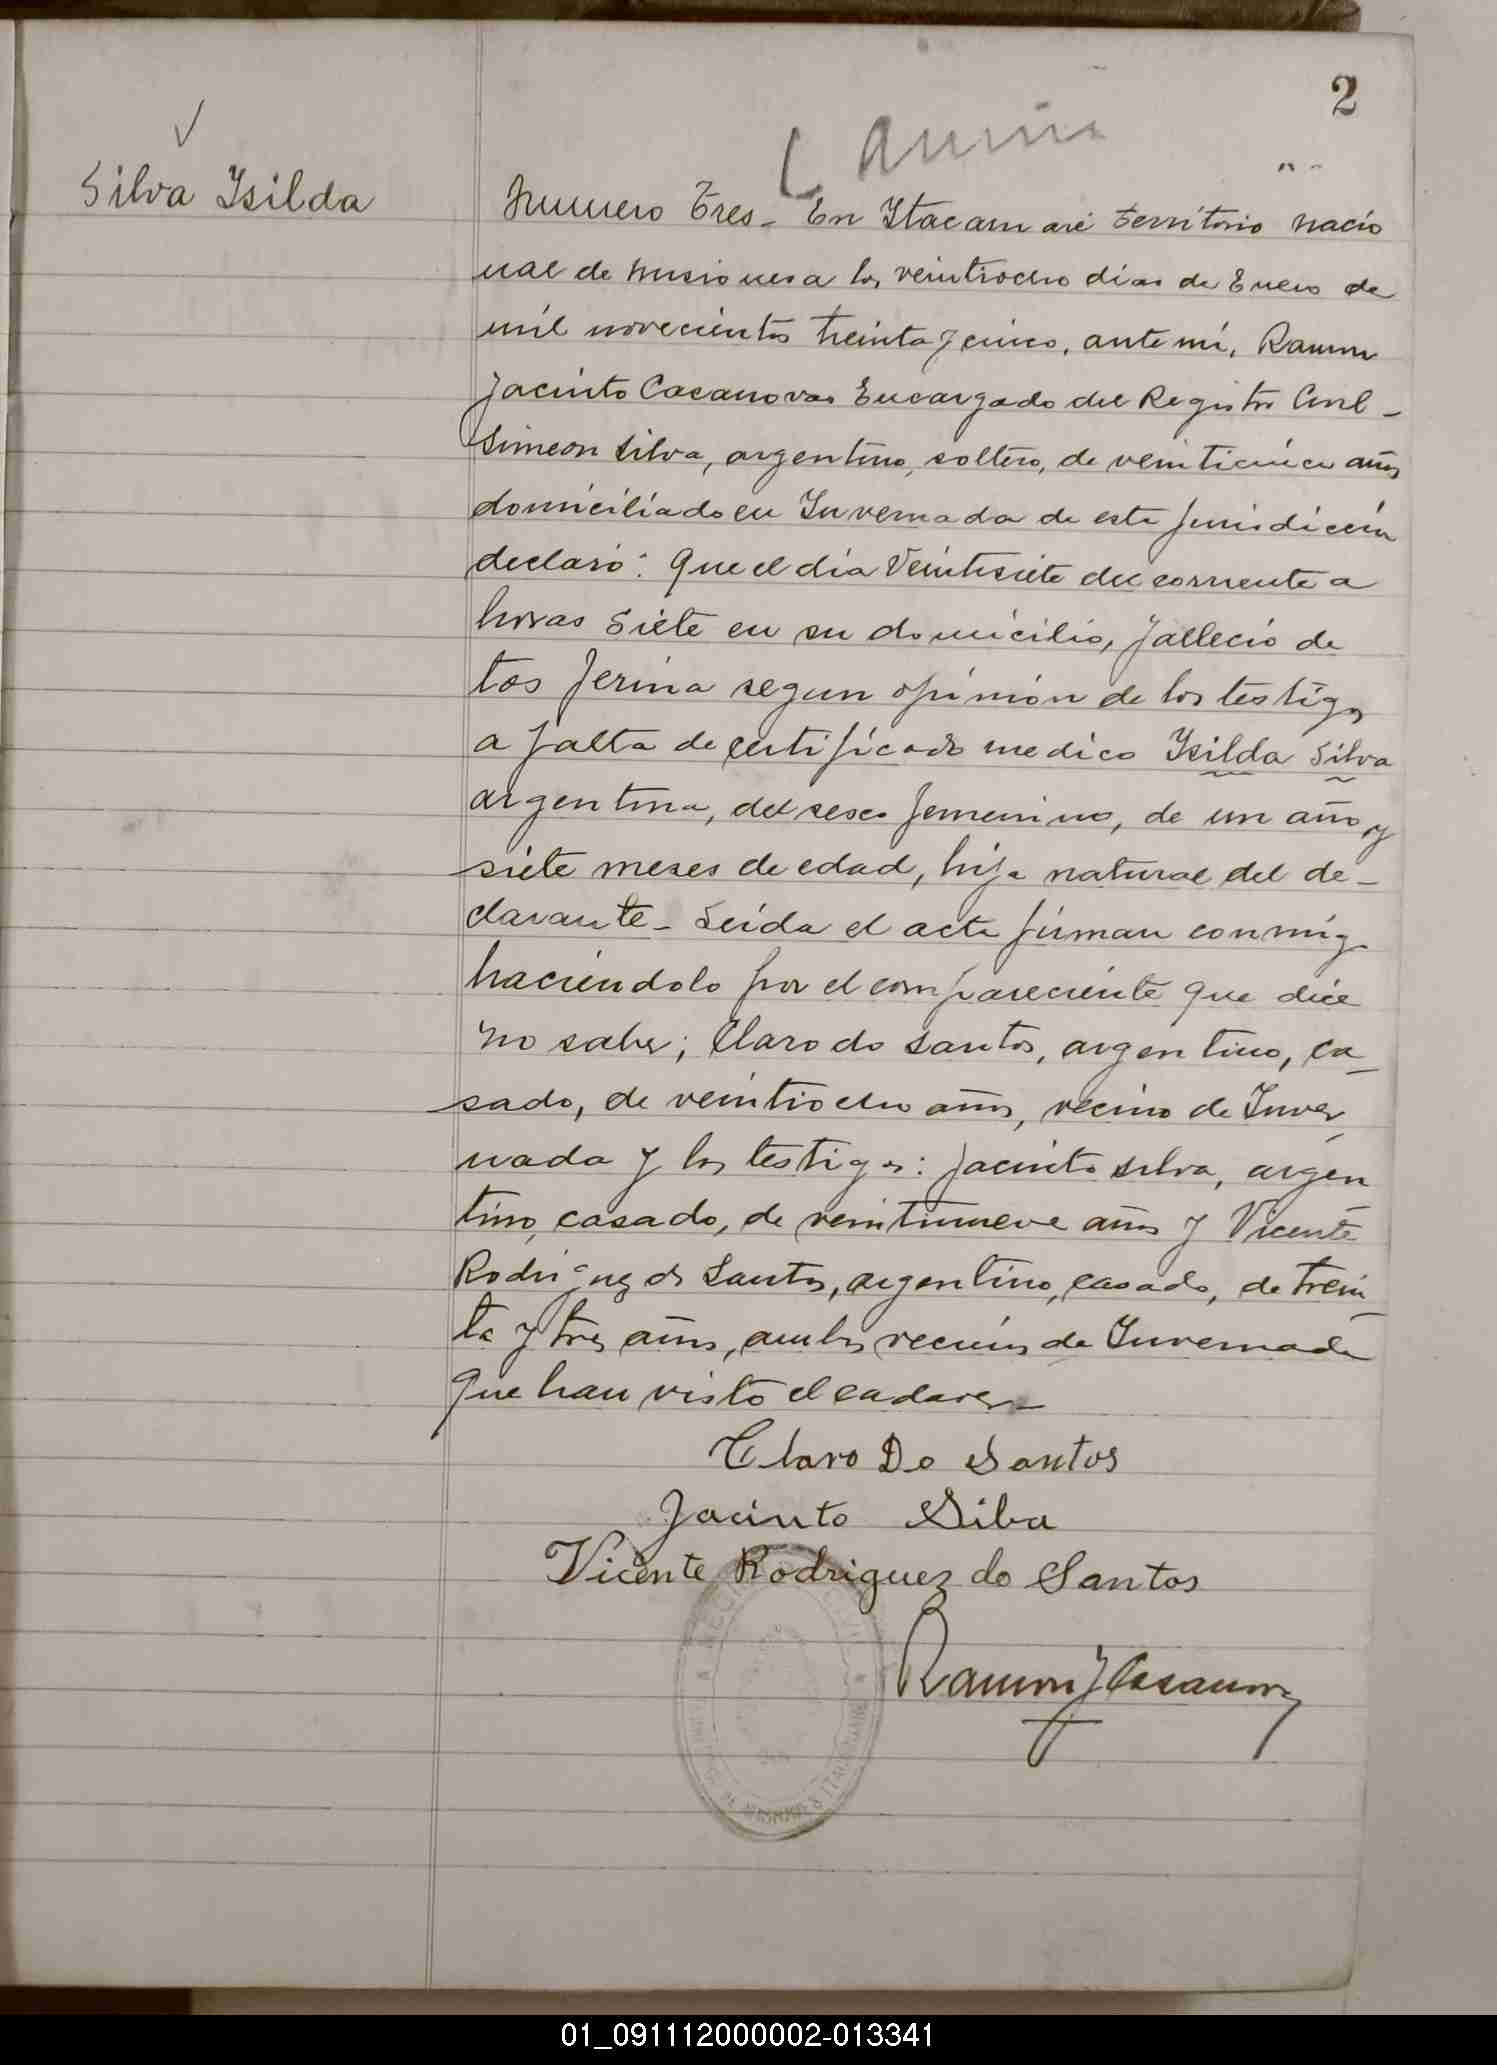 2
Silva Isilda
Numero Tres - En Itacaruaré territorio nacio
nal de Misiones a los veintiocho dias de Enero de
mil novecientos treinta y cinco, ante mi, Ramon
Jacinto Casanovas Encargado del Registro Civil -
Simeon Silva, argentino, soltero, de veinticinco años
domiciliado en Invernada de esta jurisdiccion
declaró: Que el día Veintisiete del corriente a
horas siete en su domicilio, falleció de
tos ferina segun opinión de los testigos
a falta de certificado medico Isilda Silva
argentina, del sexo femenino, de un año y
siete meses de edad, hija natural del de-
clarante - Leída el acta firman conmigo
haciendolo por el compareciente que dice
no saber; Claro do Santos, argentino, ca-
sado, de veintiocho años, vecino de Inver
nada y los testigos: Jacinto Silva, argen
tino, casado, de veintinueve años y Vicente
Rodriguez do Santos, argentino, casado, de trein
ta y tres años, ambos vecinos de Invernada
que han visto el cadaver -
Claro Do Santos
Jacinto Silva
Vicente Rodriguez do Santos
Ramon J Casanovas
01_091112000002-013341